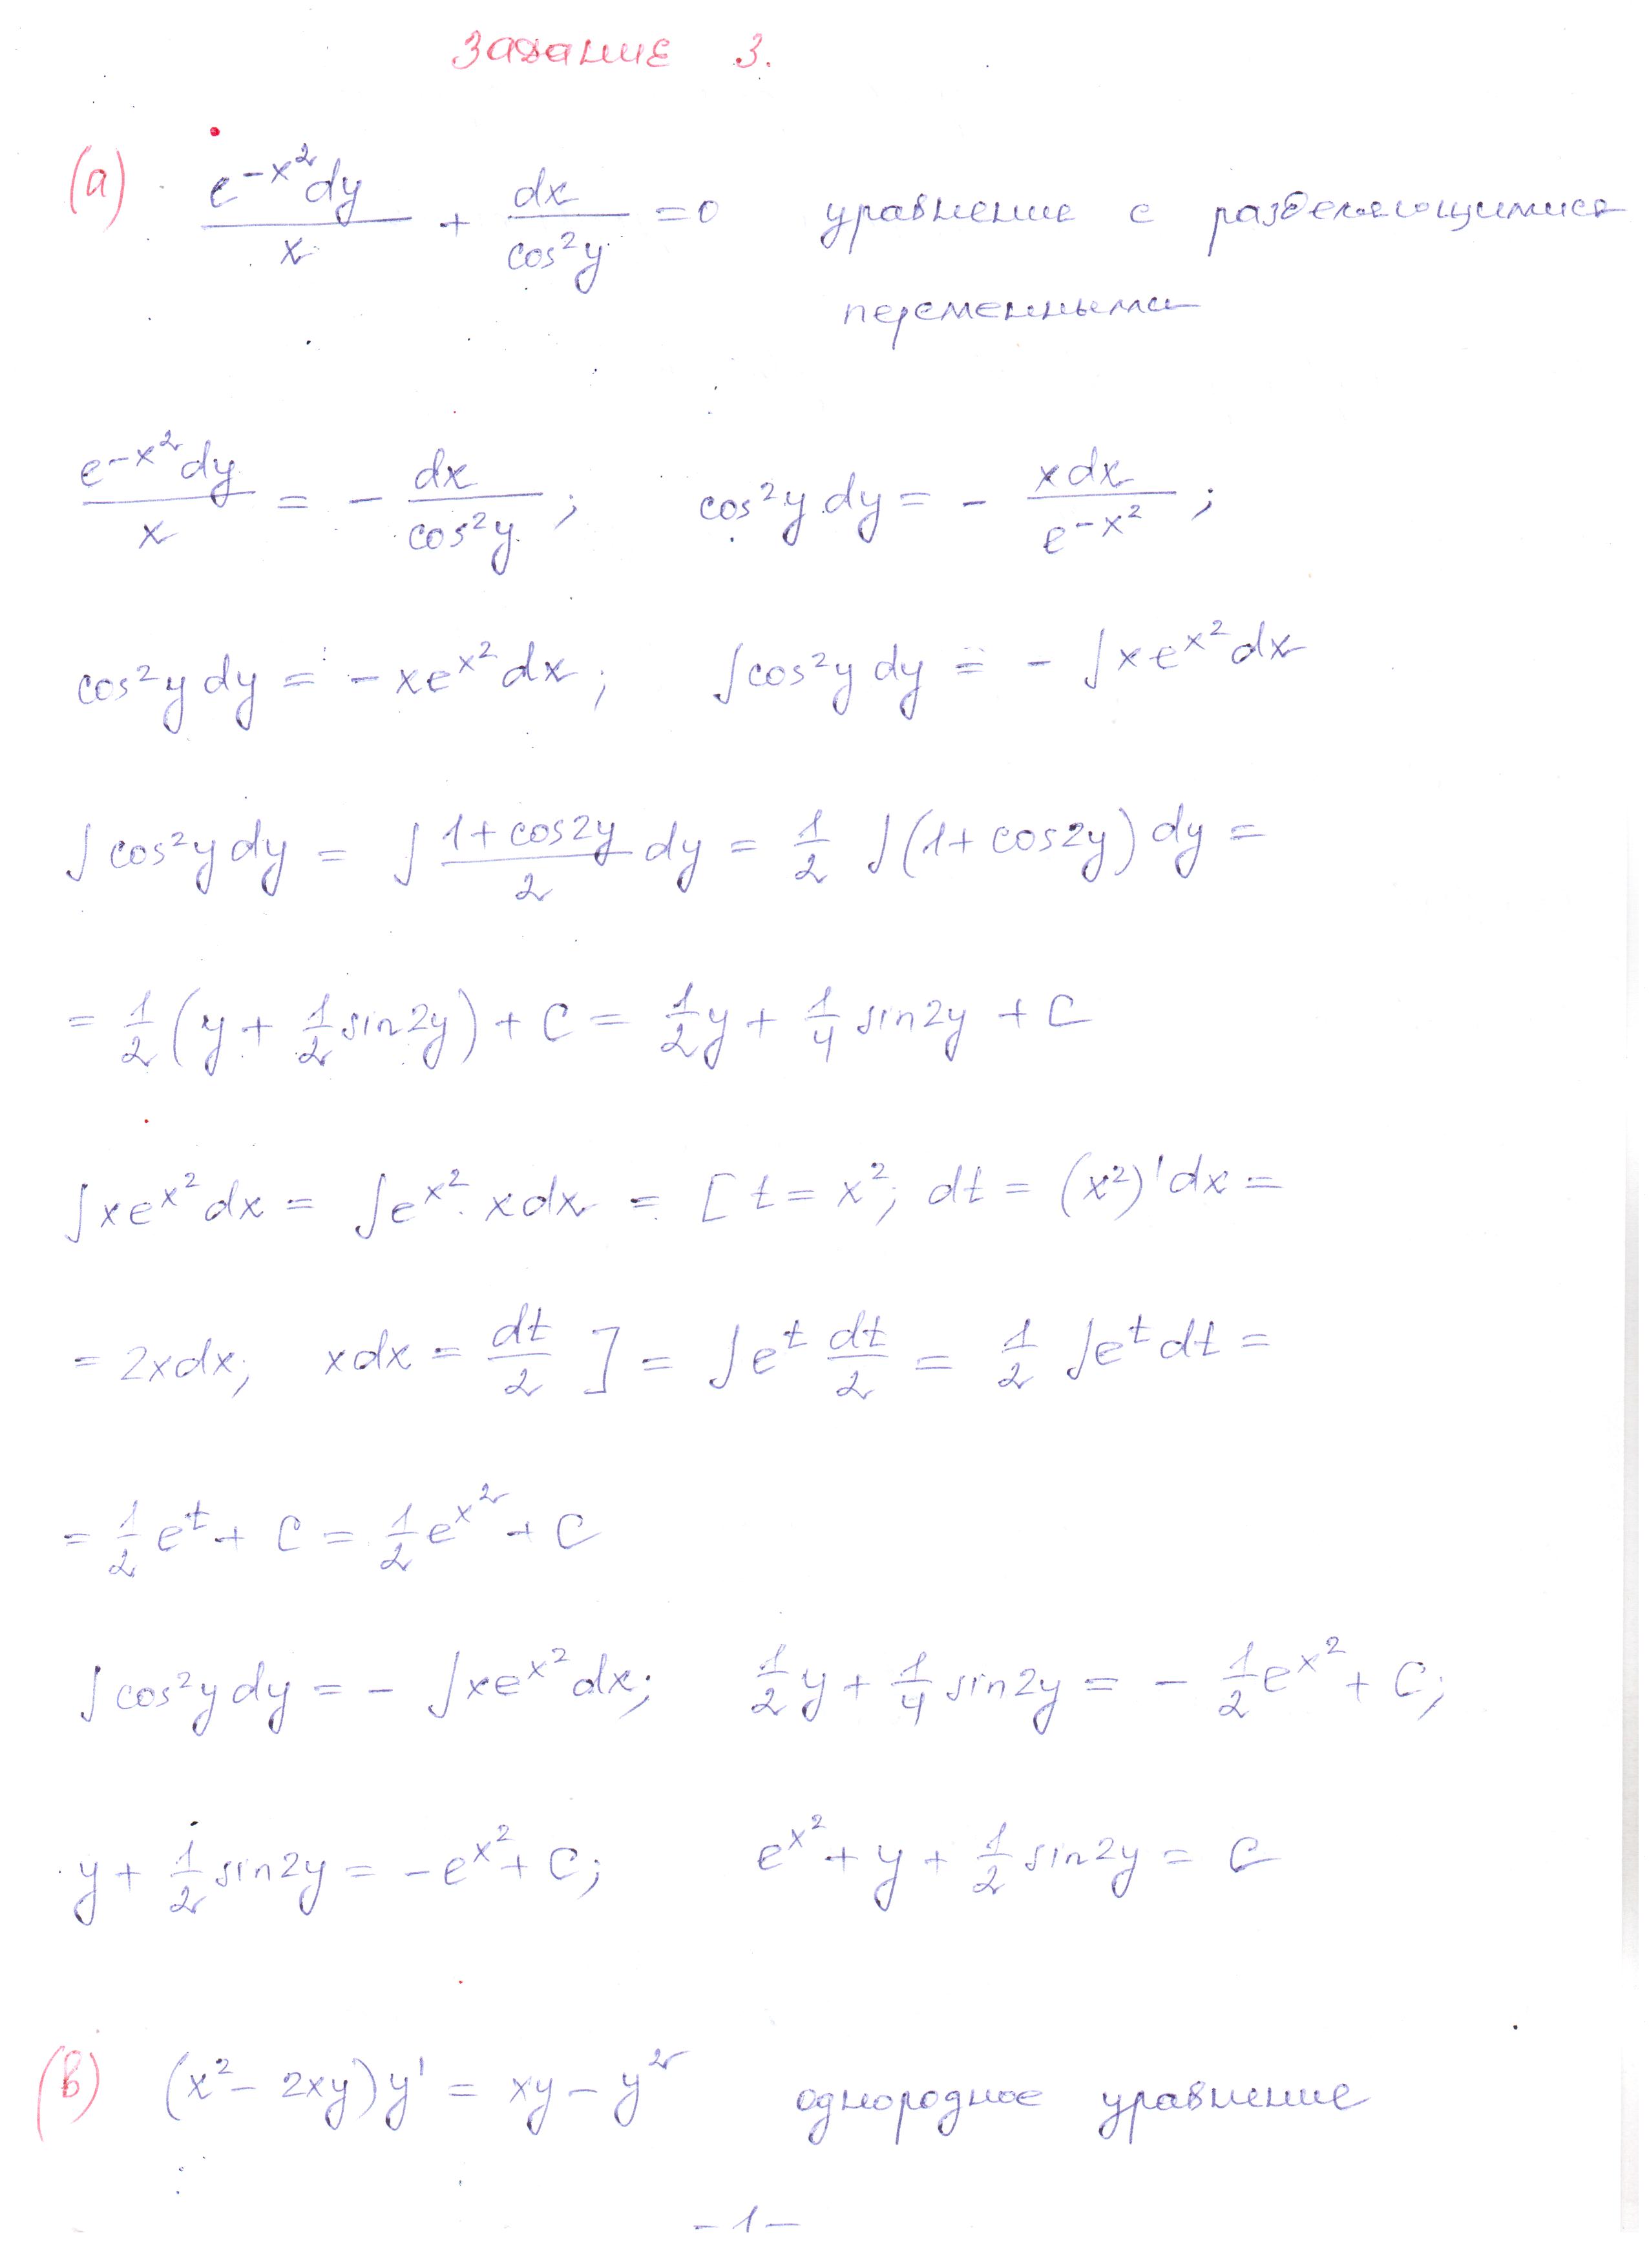 Задание 3.
(а) e^{-x^2}dy/x + dx/cos^2y = 0 уравнение с разделяющимися
переменными
e^{-x^2}dy/x = - dx/cos^2y; cos^2y dy = - xdx/e^{-x^2};
cos^2y dy = - xe^{x^2}dx; ∫cos^2y dy = - ∫xe^{x^2}dx
∫cos^2y dy = ∫(1+cos2y)/2 dy = 1/2 ∫(1+cos2y)dy =
= 1/2(y + 1/2 sin2y) + C = 1/2 y + 1/4 sin2y + C
∫xe^{x^2}dx = ∫e^{x^2}·xdx = [t = x^2; dt = (x^2)'dx =
= 2xdx; xdx = dt/2] = ∫e^t dt/2 = 1/2 ∫e^t dt =
= 1/2 e^t + C = 1/2 e^{x^2} + C
∫cos^2y dy = - ∫xe^{x^2}dx; 1/2 y + 1/4 sin2y = - 1/2 e^{x^2} + C;
y + 1/2 sin2y = -e^{x^2} + C; e^{x^2} + y + 1/2 sin2y = C
(в) (x^2 - 2xy)y' = xy - y^2 однородное уравнение
- 1 -